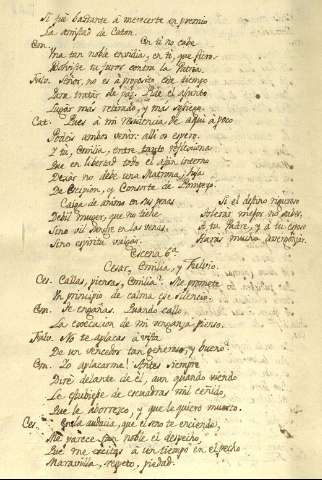 Si fué bastante à merecerte en premio
La amistad de Caton.
Em. En ti no cabe
Una tan noble envidia, en ti, que fiero
Dirigiste tu furor contra la Patria.
Fulv. Señor, no es à proposito este tiempo
Para tratar de paz. Pide el asunto
Lugar más retirado, y más sosiego.
Cat. Pues à mi residencia de aqui à poco
Podeis ambos venir: alli os espero.
Y tu, Emilia, entre tanto reflexiona
Que en libertad todo el afan interno
Dexar no debe una Matrona, hija
De Scipion, y Consorte de Pompeyo.
Caiga de animo en sus penas
Debil muger, que no tiene
Sino vil sangre en las venas,
Sino espiritu vulgar.
Si el destino riguroso
Toleras mejor no sabes,
A tu Padre, y à tu esposo
Harás mucho avergonzar.
Escena 6.a
Cesar, Emilia, y Fulvio.
Ces. Callas, piensas, Emilia? Me promete
Un principio de calma ese silencio.
Em. Te engañas. Quando callo,
La execucion de mi venganza pienso.
Fulv. No te aplacas à vista
De un vencedor tan generoso, y bueno?
Em. Yo aplacarme! Antes siempre
Diré delante de él, aun quando viendo
Le estubiese de esquadras mil ceñido,
Que le aborrezco, y que le quiero muerto.
Ces. En la audacia, que el rostro te enciende,
Me parece tan noble el despecho,
Que me excitas à un tiempo en el pecho
Maravilla, respeto, piedad.